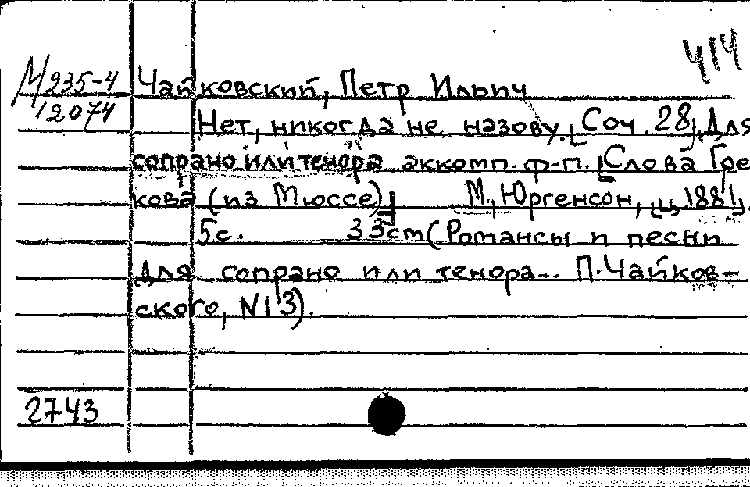 414
М 235-4 Чайковский, Петр Ильич
12074
Нет, никогда не назову. [Соч. 28]. Для
сопрано или тенора аккомп. ф-п. [Слова Гре
кова (из Мюссе)] М., Юргенсон, ц. 1881.
5с. 33cm (Романсы и песни
для сопрано или тенора... П. Чайков-
ского, N13).
2743